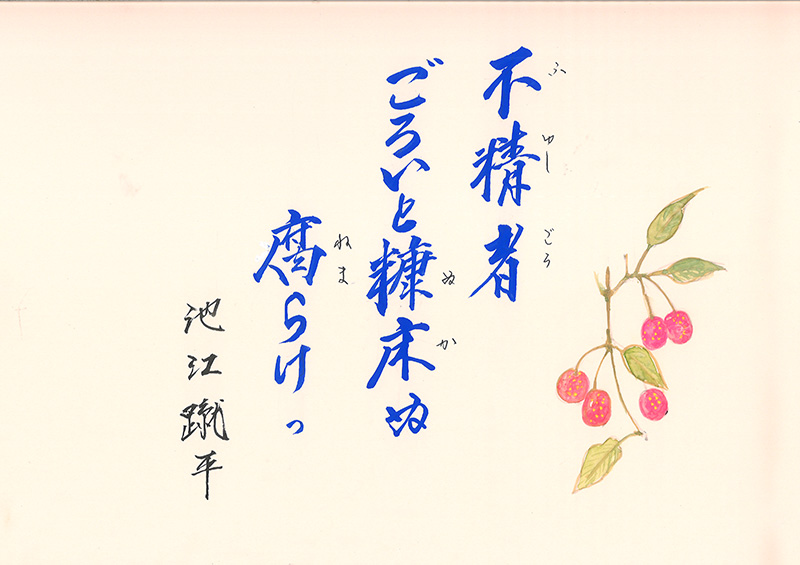 不精者
ふゆしごろ
ごろいと糠床ぬ
ぬか
腐らけっ
ねま
池江蹴平